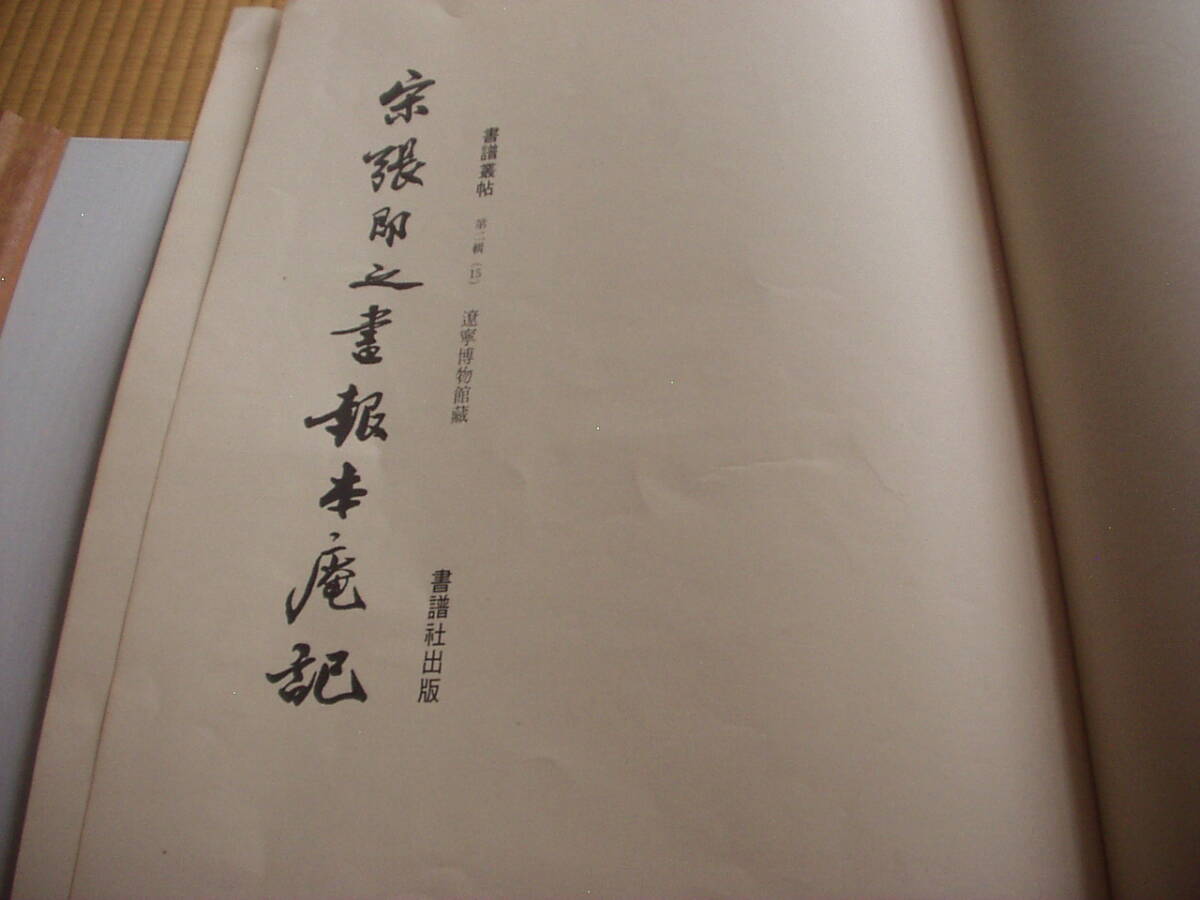 書譜叢帖 第二輯 (15) 遼寧博物館藏 書譜社出版
宋張即之書報本庵記